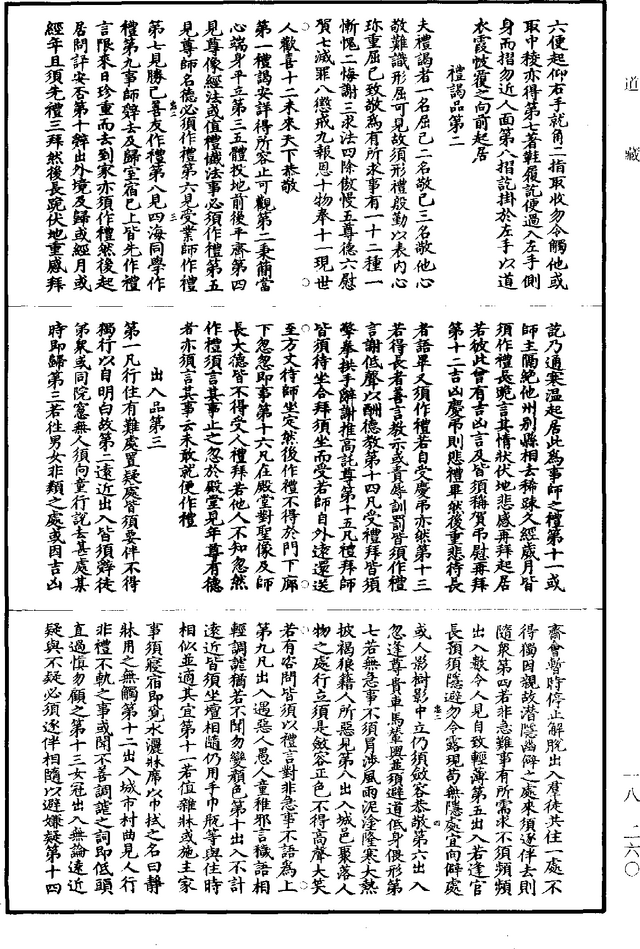 道藏
六便起仰右手就角二指取收勿令觸他或
取中稜亦得第七著鞋履訖便過入左手側
身而摺勿近人面第八摺訖掛於左手以道
衣霞帔覆之向前起居
禮謁品第二
夫禮謁者一名屈己二名敬己三名敬他心
敬難識形屈可見故須形禮殷勤以表內心
珎重屈己致敬為有所求事有一十二種一
慚愧二悔謝三求法四除傲慢五尊德六慰
賀七滅罪八懲戒九報恩十物奉十一現世
人歡喜十二未來天下恭敬
第一禮謁安詳得所容止可觀第二秉蕳當
心端身平立第三五體投地前後手齊第四
見尊像經法或值禮懺法事必須作禮第五
見尊師名德必須作禮第六見受業師作禮
第七見勝己善友作禮第八見四海同學作
禮第九事師辭去及歸室宿已上皆先作禮
言限來日珍重而去到家亦須作禮然後起
居問詳安否第十辭出外境及歸或經月或
經年且須先禮三拜然後長跪伏地重感拜
訖乃通寒溫起居此為事師之禮第十一或
師主隔絕他州別縣相去稀踈久經歲月皆
須作禮長跪言其情狀伏地悲感再拜起居
若彼此曾有吉凶言及皆須稱賀弔慰再拜
第十二吉凶慶弔則悲禮畢然後重悲待長
者語畢又須作禮若自受慶弔亦然第十三
若得長者善言教示或責辱訓罰皆須作禮
言謝低聲以酬德教第十四凡受禮拜皆須
擎拳拱手離謝推高託尊第十五凡禮拜師
皆須待坐合拜須坐而受若師自外遠還送
至方丈待師坐定然後作禮不得於門下廊
下忽忽即事第十六凡在殿堂對聖像及師
長大德皆不得受人禮拜若他人不知忽然
作禮須言其事止之忽於殿堂見年尊有德
者亦須言其事云未敢就便作禮
出入品第三
第一凡行住有難處置疑處皆須要伴不得
獨行以自明白故第二遠近出入皆須辭徒
第衆或同院窻無人須向童行說去甚處某
時即歸第三若往男女非類之處或因吉凶
齋會暫時停止解脫出入羣徒共往一處不
得獨因親故潛隱幽僻之處來須逐伴去則
隨衆第四若非急難事有所需求不須頻頻
出入數令人見自致輕薄第五出入若逢官
長預須隱避勿令露現苟無隱處宜向僻處
或人影樹影中立仍須斂容恭敬第六出入
忽逢尊貴車馬輦輿並須避道低身偎形第
七若無急事不須冒涉風雨泥塗隆寒大熱
披褐狼藉人所惡見第八出入城邑聚落人
物之處行立須是斂容正色不得高聲大笑
若有客問皆須以禮言對非急事不語為上
第九凡出入遇惡人愚人童稚邪言穢語相
輕調謔猶若不聞勿變顏色第十出入不計
遠近皆須坐壇相隨仍用手巾瓶等與住時
相似並適其宜第十一若值雜牀或施主家
事須寢宿即覓水灑牀席以巾拭之名曰靜
牀用之無觸第十二出入城市村曲見人行
非禮不軌之事或聞不善調謔之詞即低頭
直過慎勿顧之第十三女冠出入無論遠近
疑與不疑必須逐伴相隨以避嫌疑第十四
一八 二六〇